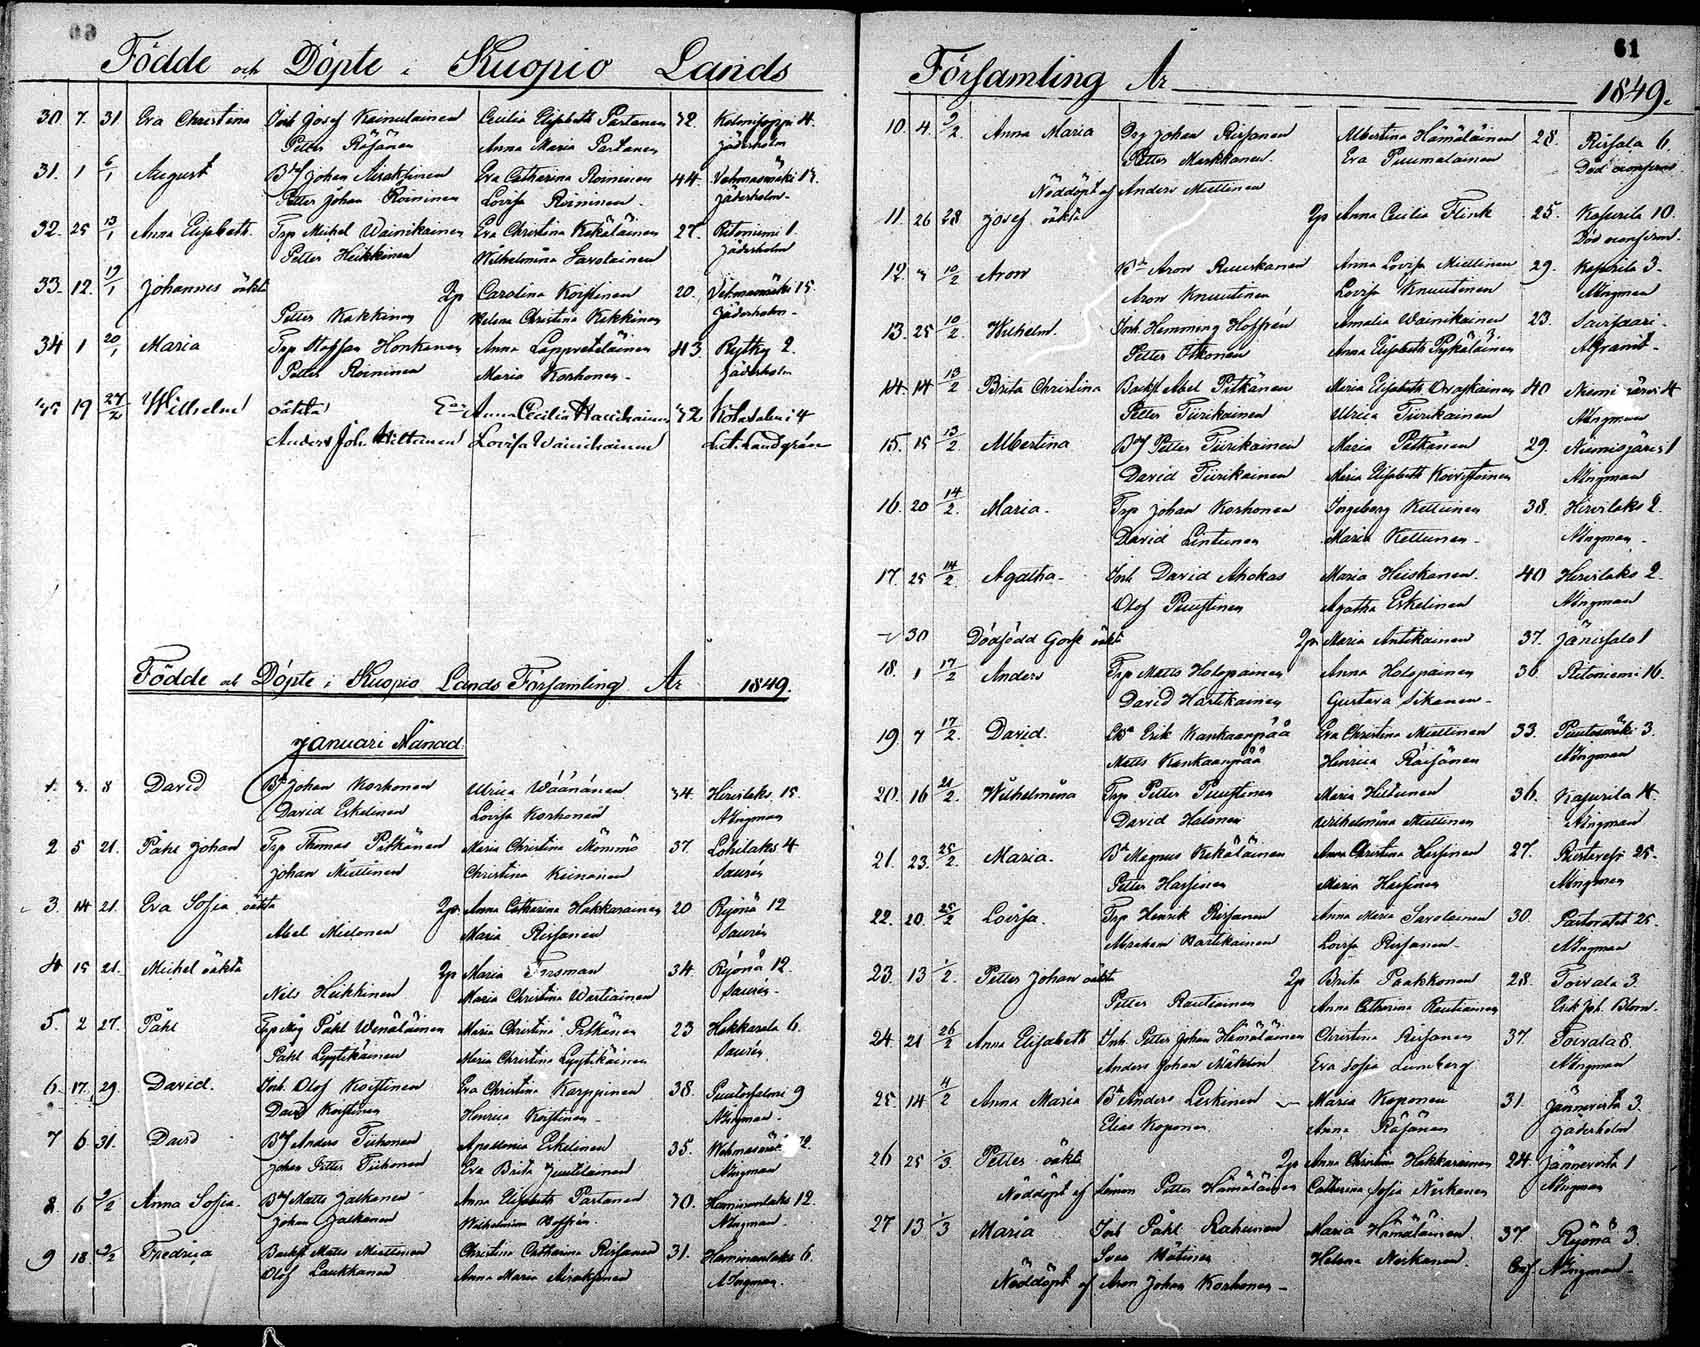 60
Födde och Döpte i Kuopio Lands
30. 7. 31 Eva Christina Inh Josef Kainulainen Cecilia Elisabeth Partanen 32. Kolmisoppi 4.
Petter Räsänen Anna Maria Partanen Jäderholm
31. 1 6/1 August Johan Airaksinen Eva Catharina Roininen 44. Vehmasmäki 17.
Petter Johan Roininen Lovisa Roininen. Jäderholm.
32. 25 13/1 Anna Elisabeth. Trp Michel Wainikainen Eva Christina Kekäläinen 27. Ritoniemi 1.
Petter Heikkinen Wilhelmina Savolainen Jäderholm
33. 12. 19/1 Johannes oäkta 2p Carolina Koistinen 20. Vehmasmäki 15
Petter Kakkinen Helena Christina Kekkinen Jäderholm.
34 1 20/1 Maria Trp Staffan Honkanen Anna Lappveteläinen 43. Rytky 2.
Petter Roininen Maria Korhonen. Jäderholm
35 19 27/2 Wilhelm oäkta Anna Cecilia 32 4
Anders Joh. Miettinen Lovisa Wainikainen Lut. Landgrén
Födde och Döpte i Kuopio Lands Församling År 1849.
Januari Månad
1. 3. 8 David Johan Korhonen Ulrica Wäänänen. 34. Hirvilaks 15.
David Eskelinen Lovisa Korhonen A Ingman
2 5 21. Påhl Johan Trp Thomas Pitkänen Maria Christina Mömmö 37 Lohilaks 4
Johan Miettinen Christina Keinänen Saurén
3. 14 21. Eva Sofia oäkta 2p. Anna Catharina Hakkarainen 20 Ryönä 12
Abel Mietonen Maria Rissanen Saurén
4 15 21. Michel oäkta 2p Maria 34. Ryönä 12.
Nils Heikkinen Maria Christina Wartiainen Saurén.
5. 2 27. Påhl Påhl Wenäläinen Maria Christina Pitkänen 23 Hakkarala 6.
Påhl Lyytikäinen Maria Christina Lyytikäinen Saurén
6. 17. 29. David. Inh. Olof Koistinen Eva Christina Karppinen 38. Puutosalmi 9
David Koistinen Henrica Koistinen A Ingman.
7 6 31. David Anders Tiihonen Apollonia Eskelinen 35. Wehmasmäki
Johan Petter Tiihonen Eva Brita Juutilainen A Ingman
8. 6 2/2 Anna Sofia. Matts Jalkanen Anna Elisabeth Partanen 30. Haminanlaks 12.
Johan Jalkanen Wilhelmina Hoffrén. A Ingman.
9 18. 2/2 Fredrica Backst Matts Miettinen Christina Catharina Rissanen 31. Haminanlaks 6.
Olof Laukkanen Anna Maria Airaksinen A Ingman.
61
Församling År 1849.
10. 4. 9/2. Anna Maria Drg Johan Rissanen Albertina Hämäläinen 28. Riisala 6.
Petter Markkanen. Eva Puumalainen
Nöddöpt af Anders Miettinen
11. 26 28 Josef oäkta 2p Anna Cecilia Flink 25. Kasurila 10.
12. 3 10/2 Aron Aron Ruuskanen Anna Lovisa Miettinen 29. Kasurila 3.
Aron Knuutinen Lovisa Knuutinen A Ingman
13. 25 10/2 Wilhelm. Inh. Hemming Hoffrén Amalia Wainikainen 23.
Petter Itkonen Anna Elisabeth Pyykäläinen A Granit.
14. 14 13/2 Brita Christina Backst Abel Pitkänen Maria Elisabeth 40 4
Petter Tiirikainen Ulrica Tiirikainen A Ingman
15. 15 13/2 Albertina Petter Tiirikainen Maria Pitkänen 29. Niemisjärvi 1
David Tiirikainen Maria Elisabeth Koivistoinen A Ingman
16. 20 14/2. Maria. Trp Johan Korhonen Ingeborg Kettunen 38. Hirvilaks 2.
David Lintunen Maria Kettunen. A Ingman.
17. 25 14/2. Agatha. Inh. David Ahokas Maria Heiskanen. 40 Hirvilaks 2.
Olof Puustinen Agatha Eskelinen A Ingman
30 Dödfödd Gosse oäkt 2p Maria Antikainen 37. Jänissalo 1
18. 1 17/2 Anders Trp Matts Holopainen Anna Holopainen 36. Ritoniemi 16.
David Hartikainen Gustava Sikanen.
19. 7 17/2. David. Erik Kankaanpää Eva Christina Miettinen 33. Puutosmäki 3.
Matts Kankaanpää Henrica Räisänen A Ingman
20. 16 21/2. Wilhelmina Trp Petter Puustinen Maria Hiltunen 36. Kasurila 14.
David Halonen Wilhelmina Miettinen A Ingman
21. 23 25/2. Maria. Magnus Kekäläinen Anna Christina Hassinen 27. 25.
Petter Hassinen Maria Hassinen A Ingman
22. 20. 25/2 Lovisa. Trp Henrik Rissanen Anna Maria Savolainen 30. 25.
Abraham Hartikainen Lovisa Rissanen. A Ingman
23. 13 1/2. Petter Johan oäkta 2p Brita Paakkonen 28. Toivala 3.
Petter Rautiainen Anna Catharina Rautiainen Erik Joh. Blom.
24. 21 26/2 Anna Elisabeth Inh. Petter Johan Hämäläinen Christina Rissanen 37. Toivala 8.
Anders Johan Eva Sofia Lundberg A Ingman
25. 14 4/2 Anna Maria Anders Leskinen Maria Koponen 31. Jännevirta 3.
Elias Koponen. Anna Räsänen Jäderholm
26 25 1/3. Petter oäkta 2p Anna Christina Hakkarainen 24. Jännevirta 1
Nöddöpt af Simon Petter Hämäläinen Catharina Sofia Niskanen A Ingman
27 13 1/3 Maria Inh Påhl Rahunen Maria Hämäläinen. 37 Ryönä 3.
Sven Mötinen Helena Niskanen. A Ingman.
Nöddöpt af Aron Johan Korhonen.